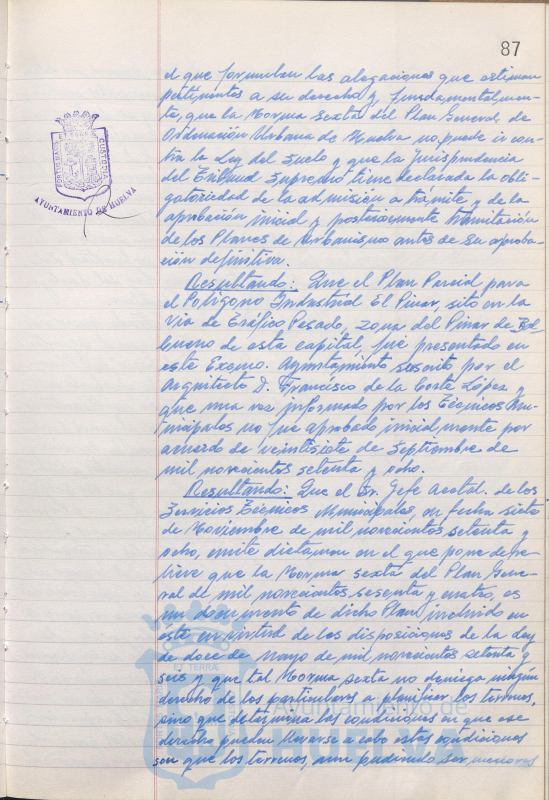 87
el que formulan las alegaciones que estiman
pertinentes a su derecho y fundamentalmen-
te, que la Norma sexta del Plan General de
Ordenación Urbana de Huelva no puede ir con-
tra la Ley del Suelo y que la Jurisprudencia
del Tribunal Supremo tiene declarada la obli-
gatoriedad de la admisión a trámite y de la
aprobación inicial y posteriormente tramitación
de los Planes de Urbanismo antes de su aproba-
ción definitiva.
Resultando: Que el Plan Parcial para
el Polígono Industrial El Pinar, sito en la
Vía de Tráfico Pesado, zona del Pinar de Bal-
bueno de esta capital, fue presentado en
este Excmo. Ayuntamiento suscrito por el
Arquitecto D. Francisco de la Corte López y
que una vez informado por los Técnicos Mu-
nicipales no fue aprobado inicialmente por
acuerdo de veintisiete de Septiembre de
mil novecientos setenta y ocho.
Resultando: Que el Sr. Jefe Acctal. de los
Servicios Técnicos Municipales, en fecha siete
de Noviembre de mil novecientos setenta y
ocho, emite dictamen en el que pone de re-
lieve que la Norma sexta del Plan Gene-
ral de mil novecientos sesenta y cuatro, es
un documento de dicho Plan, incluido en
éste en virtud de las disposiciones de la Ley
de doce de Mayo de mil novecientos setenta y
seis y que tal Norma sexta no deniega ningún
derecho de los particulares a planificar los terrenos,
sino que determina las condiciones en que ese
derecho pueden llevarse a cabo estas condiciones
son que los terrenos, aun pudiendo ser menores
PORTUS MARIS ET TERRAE CUSTODIA
AYUNTAMIENTO DE HUELVA
ET TERRAE
Ayuntamiento de
HUELVA